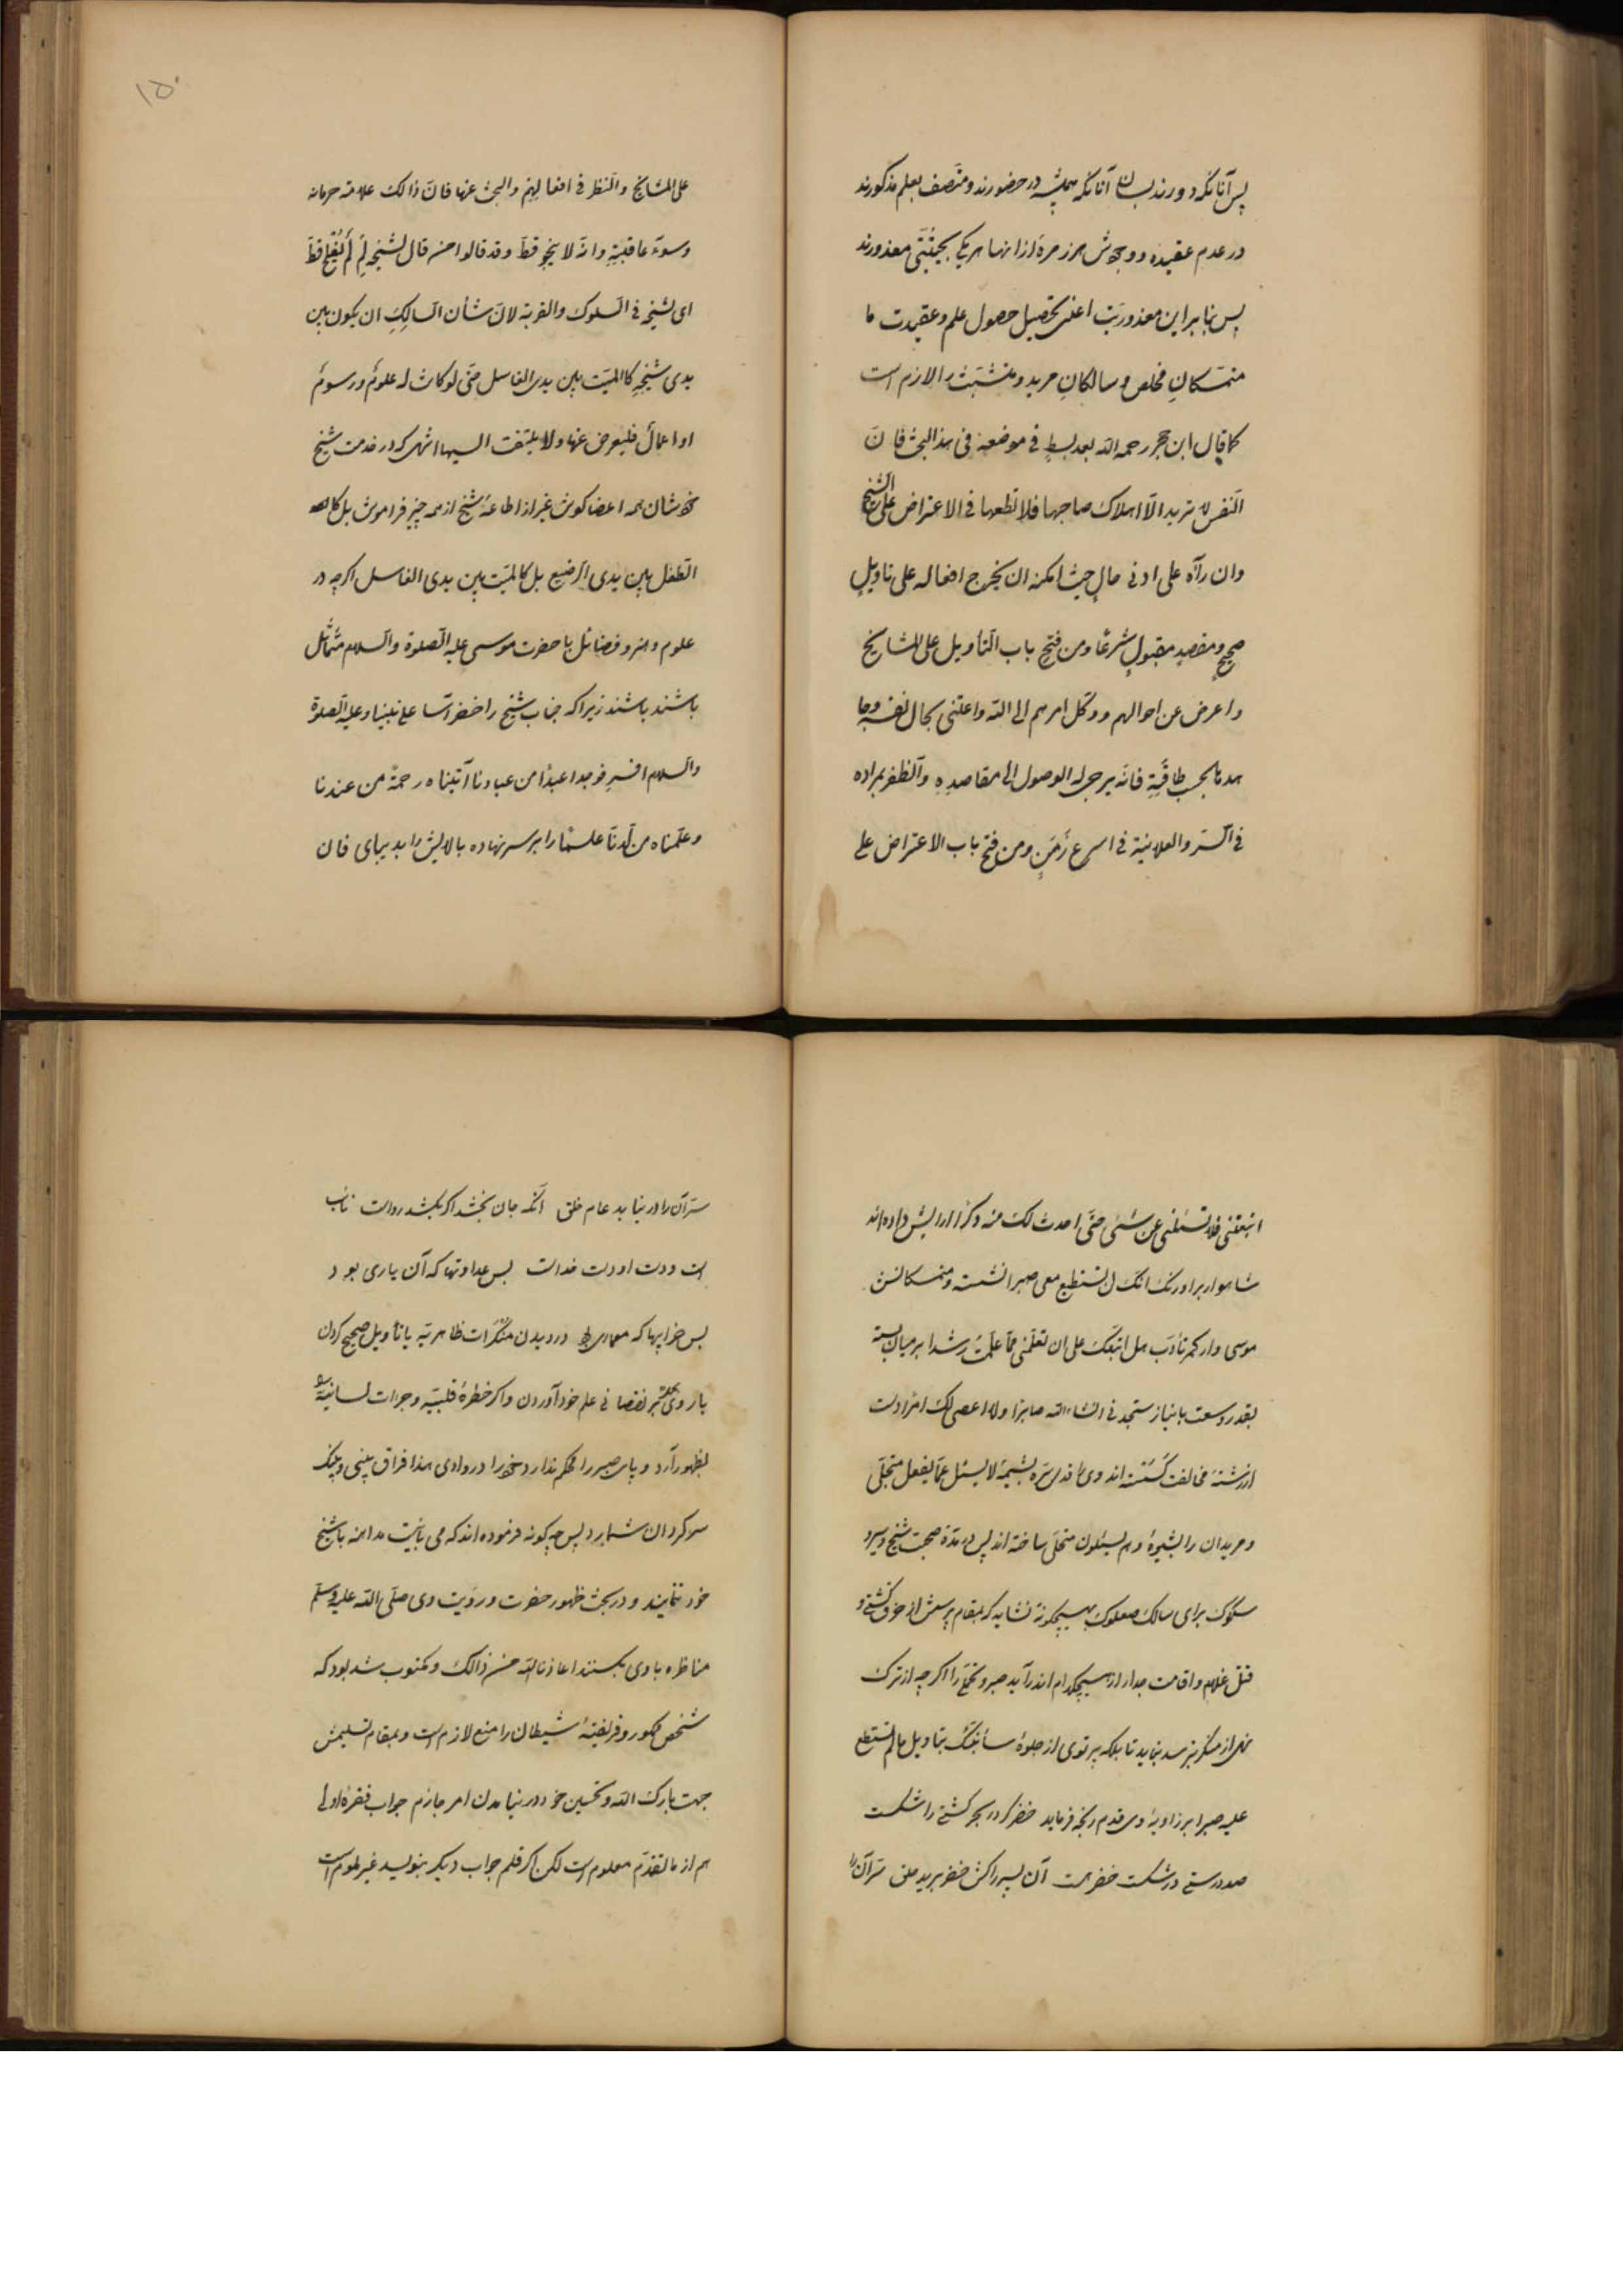 پس آنانکه دورند بسان آنانکه همیشه در حضورند و متّصف بعلم مذکورند
در عدم عقیده و وجودش هر زمرهٔ از اینها هر یکی بحیثیّتی معذورند
پس بنا براین معذوریّت اعنی بتحصیل حصول علم و عقیدت ما
متمسّکانِ مخلص و سالکانِ مرید و متشبّث را لازم است
کما قال ابن حجر رحمه الله بعد بسطٍ فی موضعه فی هذا البحث فانّ
النّفس لا ترید الّا اهلاک صاحبها فلا تطعها فی الاعتراض علی الشّیخ
وان رآه علی ادنی حالٍ حیث امکنه ان یخرج افعاله علی تاویلٍ
صحیحٍ و مقصدٍ مقبولٍ شرعًا ومن فتح باب التّأویل علی المشایخ
واعرض عن احوالهم ووکّل امرهم الی الله واعتنی بحال نفسه وجا
هدها بحسب طاقته فانّه یرجی له الوصول الی مقاصده والظّفر بمراده
فی السّرّ والعلانیة فی اسرع زَمَنٍ ومن فتح باب الاعتراض علی
۱۵۰
علی المشایخ والنّظر فی افعالهم والبحث عنها فانّ ذالک علامة حرمانه
وسوء عاقبتهِ وانّه لا ینجو قطّ وقد قالوا من قال لشیخه لِمَ لَم یُفلح قطّ
ای لشیخه فی السّلوک والقربة لانّ شأن السّالِکِ ان یکون بین
یدی شیخِهِ کالمیّت بین یدی الغاسل حتّی لو کانت له علومٌ ورسومٌ
او اعمالٌ فلیعرض عنها ولا یلتفت الیها انتهی که در خدمت شیخ
خودشان همه اعضا کوش غیر از اطاعهٔ شیخ از همه چیز فراموش بل کا
الطّفل بین یدی الرّضیع بل کالمیّت بین یدی الغاسل اکرچه در
علوم و هنر و فضائل با حضرت موسی علیه الصّلوة والسّلام متماثل
باشند باشند زیرا که جناب شیخ را خضرآسا علی نبیّنا وعلیه الصّلوة
والسّلام افسرِ فوجدا عبدًا من عبادنا آتیناه رحمةً من عندنا
وعلّمناه من لّدنّا علمًا را بر سر نهاده بالایش را بدیبای فان
اتبعتنی فلا تسئلنی عن شیٔ حتّی احدث لک منه ذکرًا آرایش داده‌اند
شاهوار بر اورنک انّک لن تستطیع معی صبرا نشسته و متمسّکانش
موسی وار کمر تأدّب هل اتّبعک علی ان تعلّمنی ممّا علّمت رشدا بر میان بسته
بقدر وسعت با نیاز ستجدنی انشاءالله صابرًا ولا اعصی لک امرًا دست
از رشتهٔ مخالفت کسسته‌اند وی را قدّس سرّه بشیمهٔ لا یسئل عمّا یفعل متجلّی
و مریدان را بشیوهٔ وهم یسئلون متحلّی ساخته‌اند پس در مدّة صحبت شیخ و سیر و
سلوک برای سالک صعلوک بهیچکونه نشاید که بمقام پرسش از خرق کشتی و
قتل غلام واقامت جدار از هیچکدام اندر آید صبر و تحمّل را اکرچه از ترک
نهی از منکر بترسد بنماید تا بلکه پرتوی از جلوهٔ سأنبّئک بتاویل ما لم تستطع
علیه صبرا بر زاویهٔ وی قدم رنجه فرماید خضر کر در بحر کشتی را شکست
صد درستی در شکست خضر هست آن پسر را کش خضر ببرید حلق سرّ آن را
سرّ آن را در نیابد عام خلق آنکه جان بخشد اکر بکشد رواست نائب
است و دست او دست خداست بس عداوتها که آن یاری بود
بس خرابیها که معماری بود در دیدن منکرات ظاهریّه یا تأویل صحیح کردن
یا روی بنقصانی علم خود آوردن و اکر خطرهٔ قلبیّه و جرات لسانیّه
بظهور آرد و پای صبر را محکم ندارد خود را در وادی هذا فراق بینی و بینک
سرکردان شمارد پس چه کونه فرموده‌اند که می بایست مداهنه با شیخ
خود ننمایند و در بحث ظهور حضرت و رؤیت وی صلّی الله علیه وسلّم
مناظره با وی بکنند اعاذنا الله من ذالک و مکتوب شده بود که
شخص و فریفتهٔ شیطان را منع لازم است و بمقام تسلیمش
جهت بارک الله و تحسین خود در نیامدن امر جازم جواب فقرهٔ اولی
هم از ما تقدّم معلوم است لکن اکر قلم جواب دیکر بنویسد غیر ملوم است